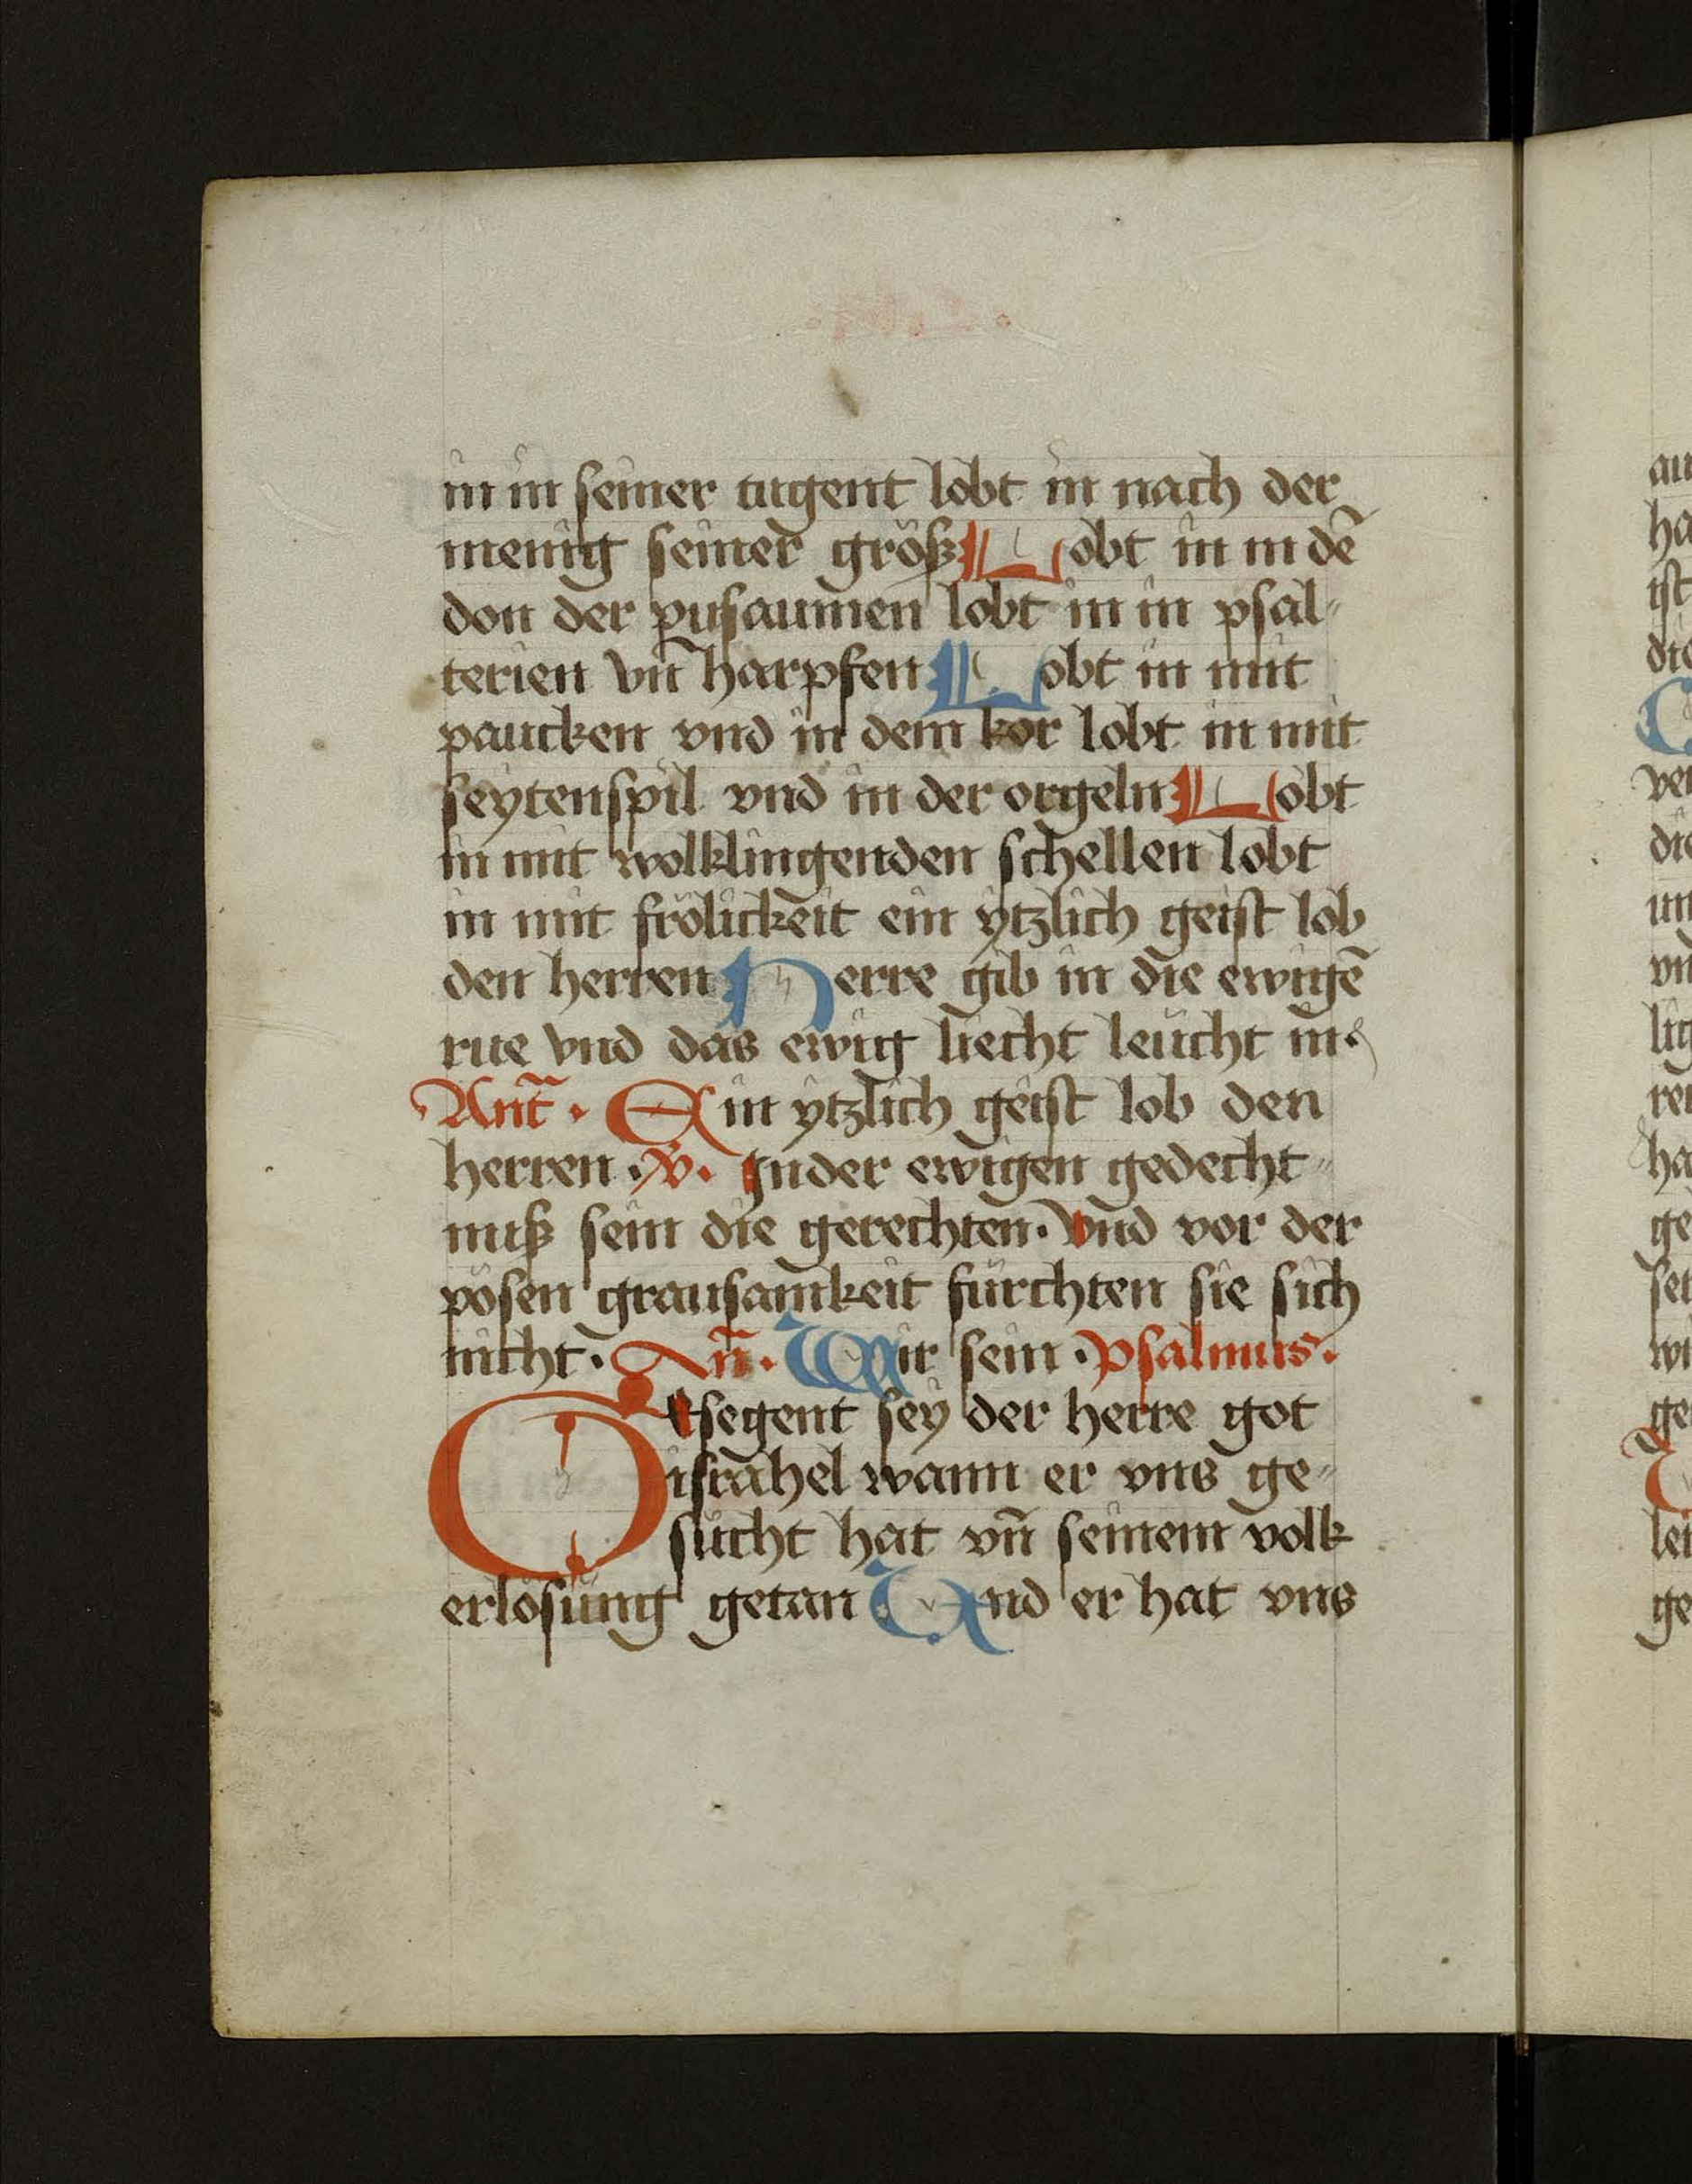 in in seiner tugent lobt in nach der
menig seiner größ Lobt in in dē
don der pusaumen lobt in in psal-
terien vn̄ harpfen Lobt in mit
paucken vnd in dem kor lobt in mit
seytenspil vnd in der orgeln Lobt
in mit wolklingenden schellen lobt
in mit frölickeit ein ytzlich geist lob
den herren Herre gib in die ewigē
rue vnd das ewig liecht leücht in.
Ant̄. Ein ytzlich geist lob den
herren. V. In der ewigen gedecht-
niß sein die gerechten. Vnd vor der
pösen grausamkeit fürchten sie sich
nicht. An̄. Wir sein. Psalmus.
Gesegent sey der herre got
israhel wann er vns ge-
sücht hat vn̄ seinem volk
erlösüng getan Und er hat vns